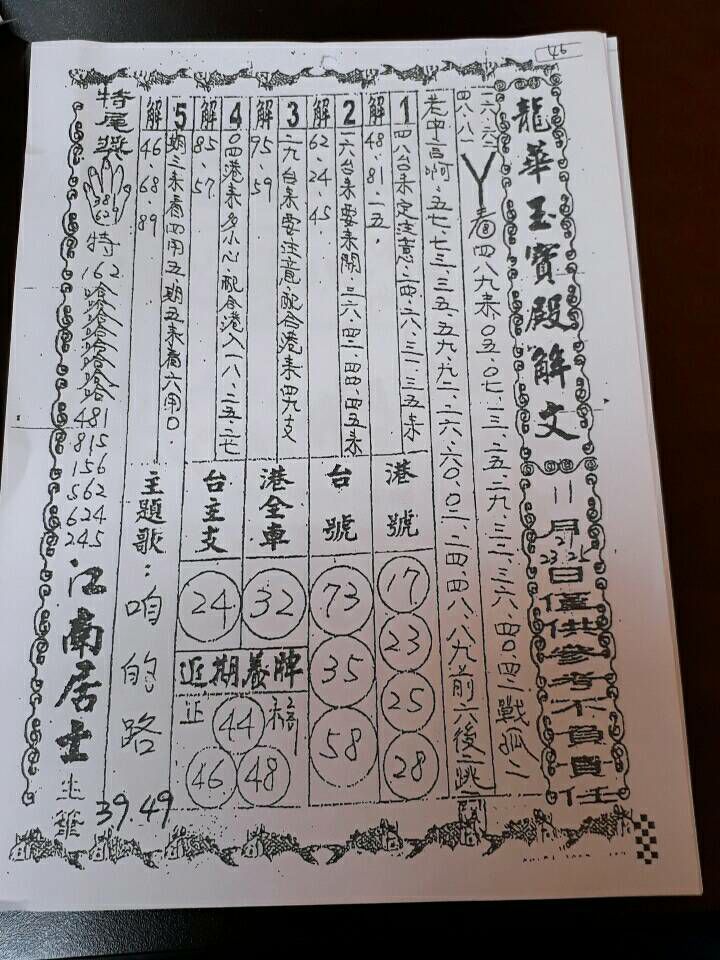 46
龍華玉寶殿解文
11月
21
23.25
日僅供參考不負責任
二六.六二
四八.八一
丫看四八九來〇五.〇七.一三.二五.二九.三二.三六.四〇.四二戰孤二
老中言啊.五七.七三.三五.五九.九二.二六.六〇.〇二.二四.四八.八九前六後二跳二
1
四八台來定注意.二四.二六.三一.三五來
解
48.81.15.
2
二六台來要來開.二六.四二.四四.四五來
解
62.24.45
3
二九台來要注意.配合港來四九支
解
95.59
4
〇四港來多小心.配合港入一八.二五.二七
解
85.57
5
期三來看四用五期五來看六用〇.
解
46.68.89
港號
17
23
25
28
台號
73
35
58
港全車
32
台主支
24
近期養牌
正
44
福
46
48
主題歌:咱的路
39.49
特尾獎
38
629
特
162
哈哈哈哈哈路
481
815
156
562
624
245
江南居士主筆